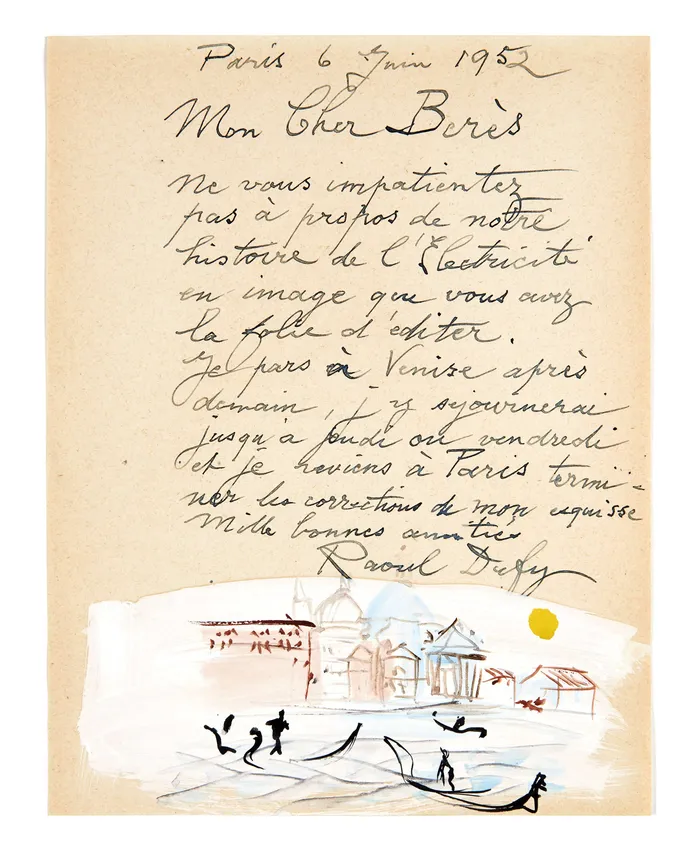 Paris 6 Juin 1952
Mon Cher Berès
Ne vous impatientez
pas à propos de notre
histoire de l'Électricité
en image que vous avez
la folie d'éditer.
Je pars à Venise après
demain, j'y séjournerai
jusqu'à jeudi ou vendredi
et je reviens à Paris termi-
ner les corrections de mon esquisse
Mille bonnes amitiés
Raoul Dufy